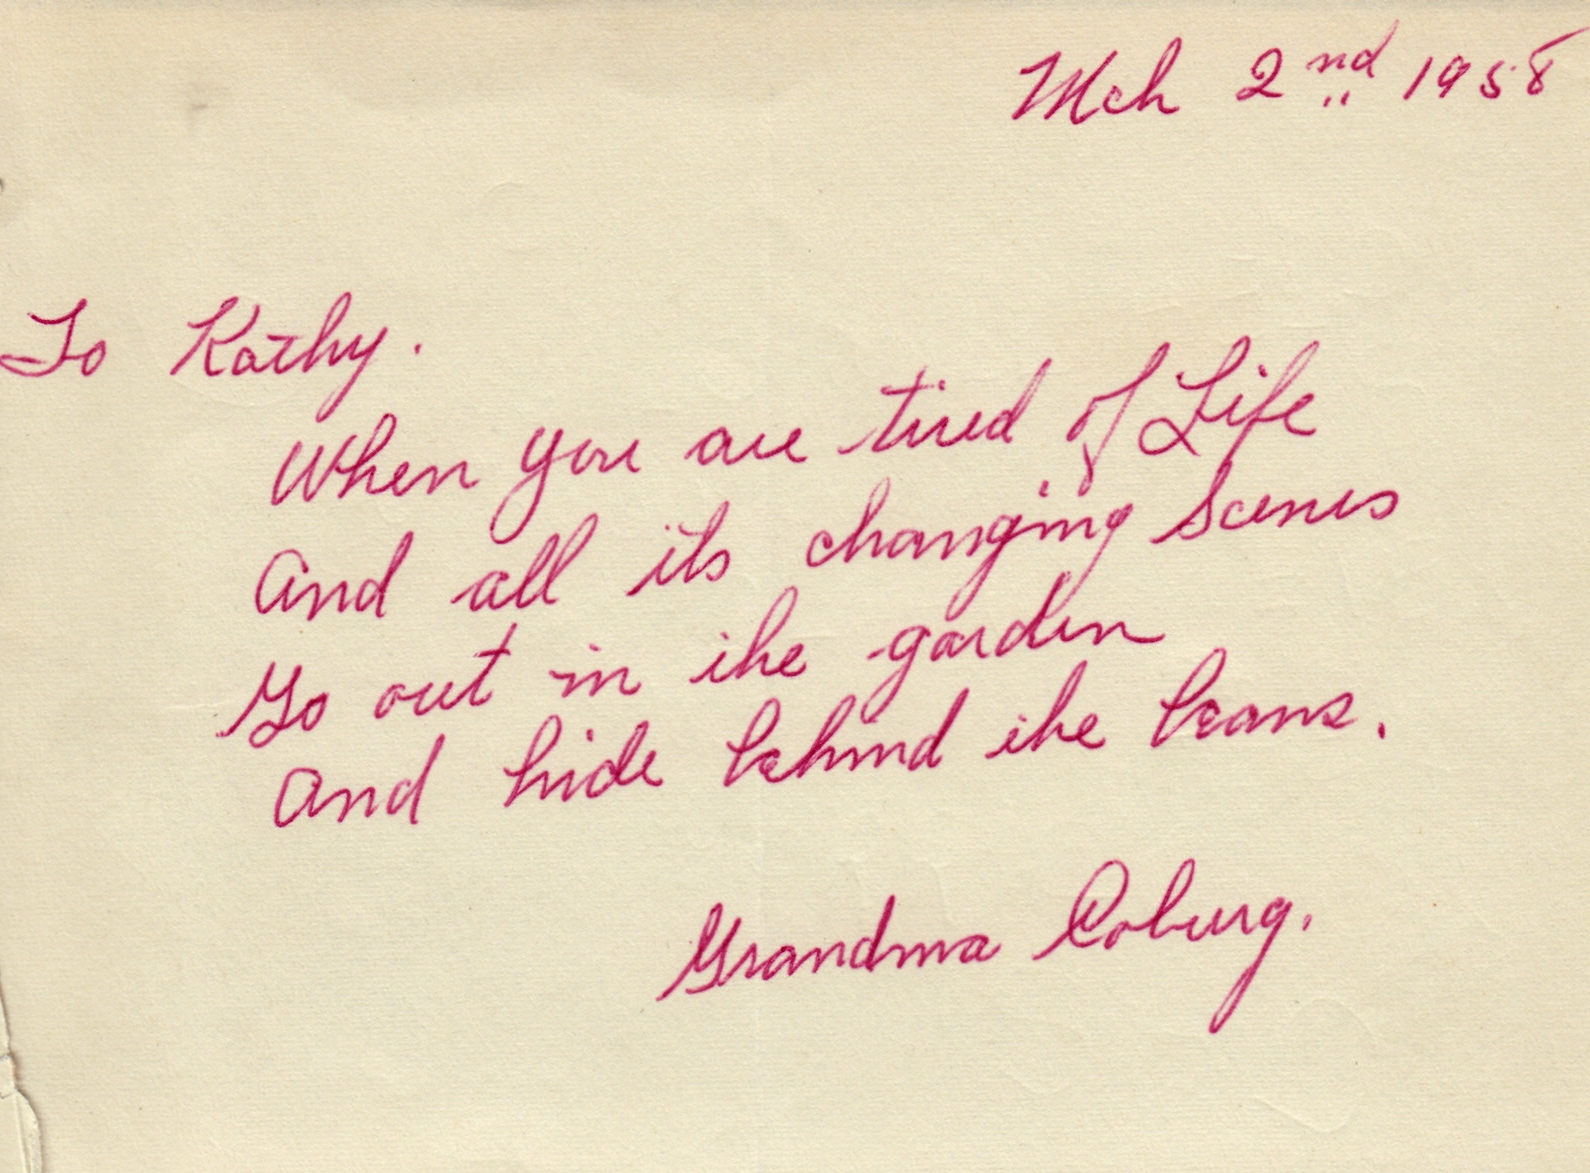 Mch 2nd 1958
To Kathy.
When you are tired of Life
And all its changing Scenes
Go out in the garden
And hide behind the beans.
Grandma Coburg.